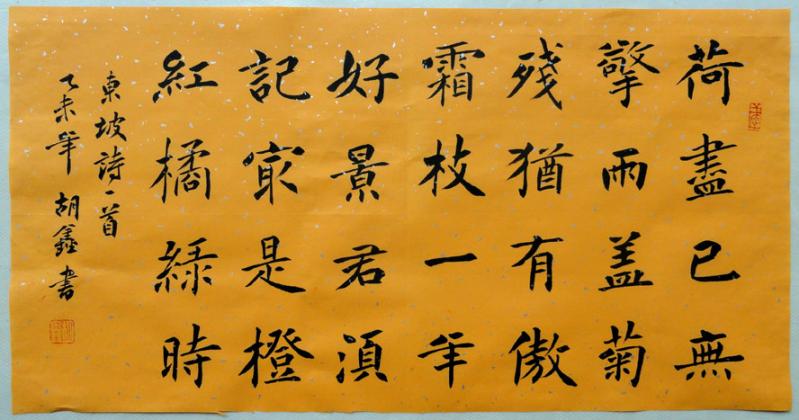 荷盡已無
擎雨盖菊
殘猶有傲
霜枝一年
好景君須
記最是橙
紅橘綠時
東坡詩一首
乙未年 胡鑫書